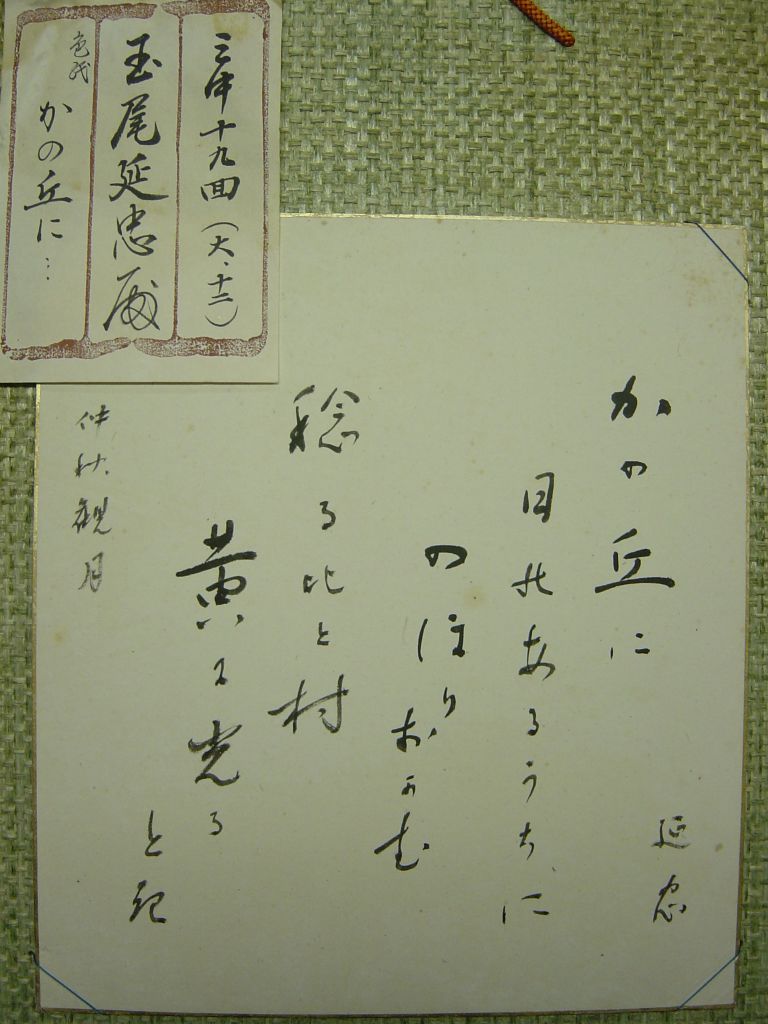 三中十九回(大、十二)
玉尾延忠殿
色紙 かの丘に…
延忠
かの丘に
日のあるうちに
のほりおかむ
稔るひと村
黄に光る
とき
仲秋観月